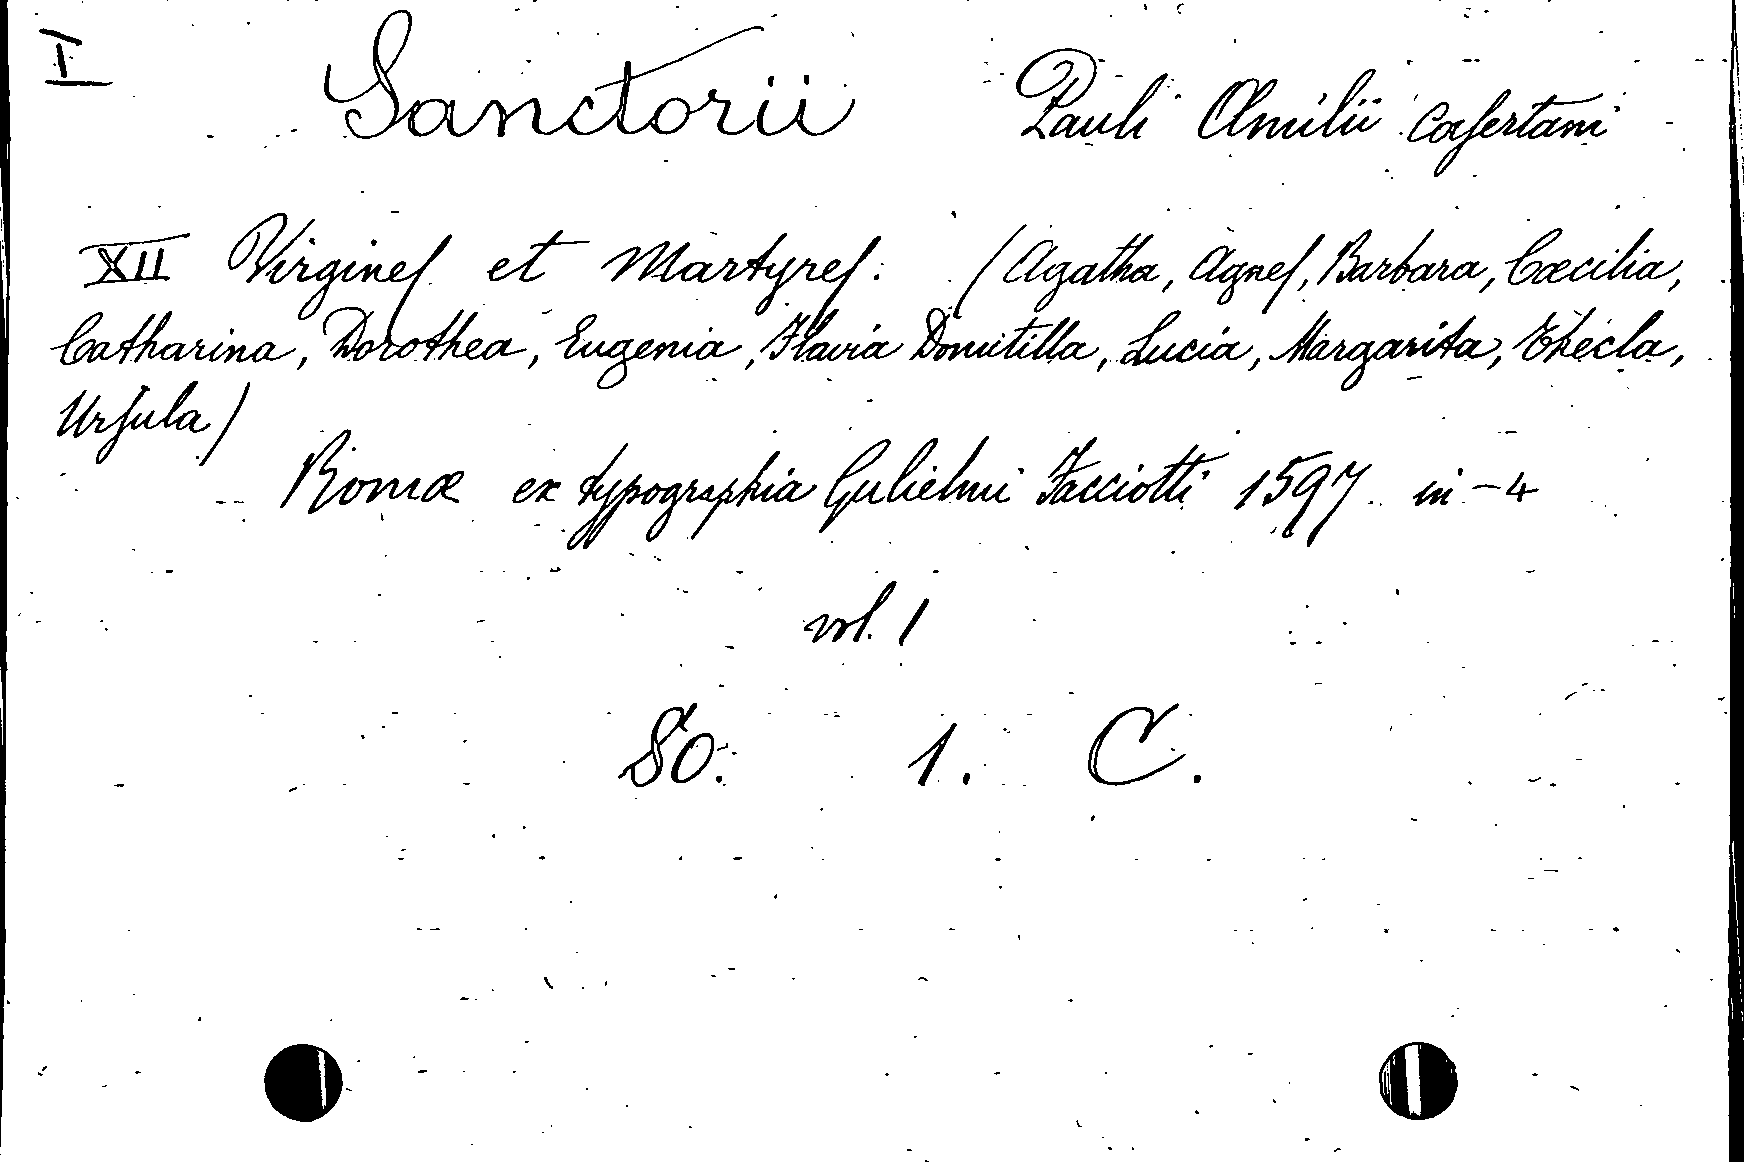 I Sanctorii Pauli Æmilii Casertani
XII Virgines et Martyres. (Agatha, Agnes, Barbara, Cæcilia,
Catharina, Dorothea, Eugenia, Flavia Domitilla, Lucia, Margarita, Thecla,
Ursula)
Romæ ex typographia Gulielmi Facciotti 1597 in-4
vol. 1
80. 1. C.